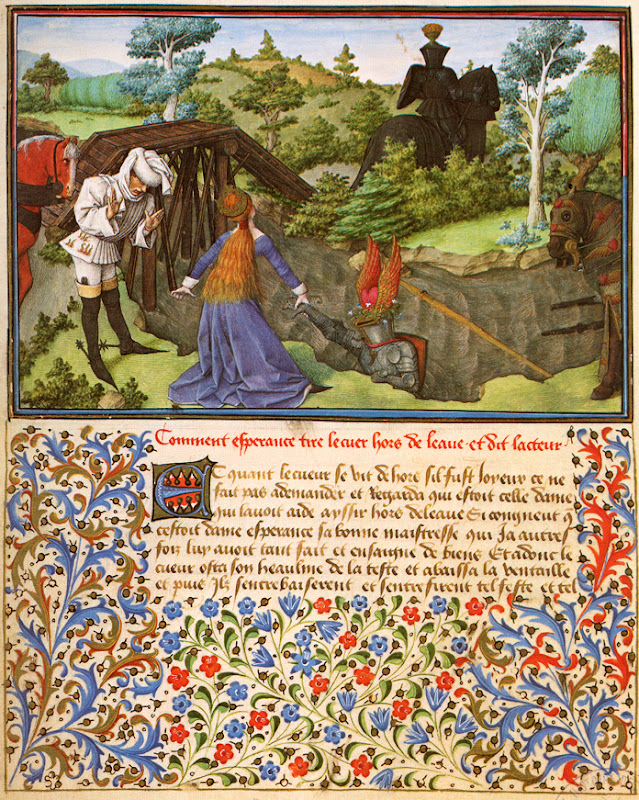 Comment esperance tire le cuer hors de leaue · et dit lacteur
Et quant le cueur se vit dehors sil fust Joyeux ce ne
fait pas ademander et Regarda qui estoit celle dame
qui lavoit aide ayssir hors de leaue Et congneut q̄
cestoit dame esperance sa bonne maistresse qui Ja autres
foiz luy avoit tant fait et ensaigne de biens Et adonc le
cueur osta son heaulme de la teste et abaissa la ventaille
et puis Ilz sentrebaiserent et sentrefirent tel feste et tel